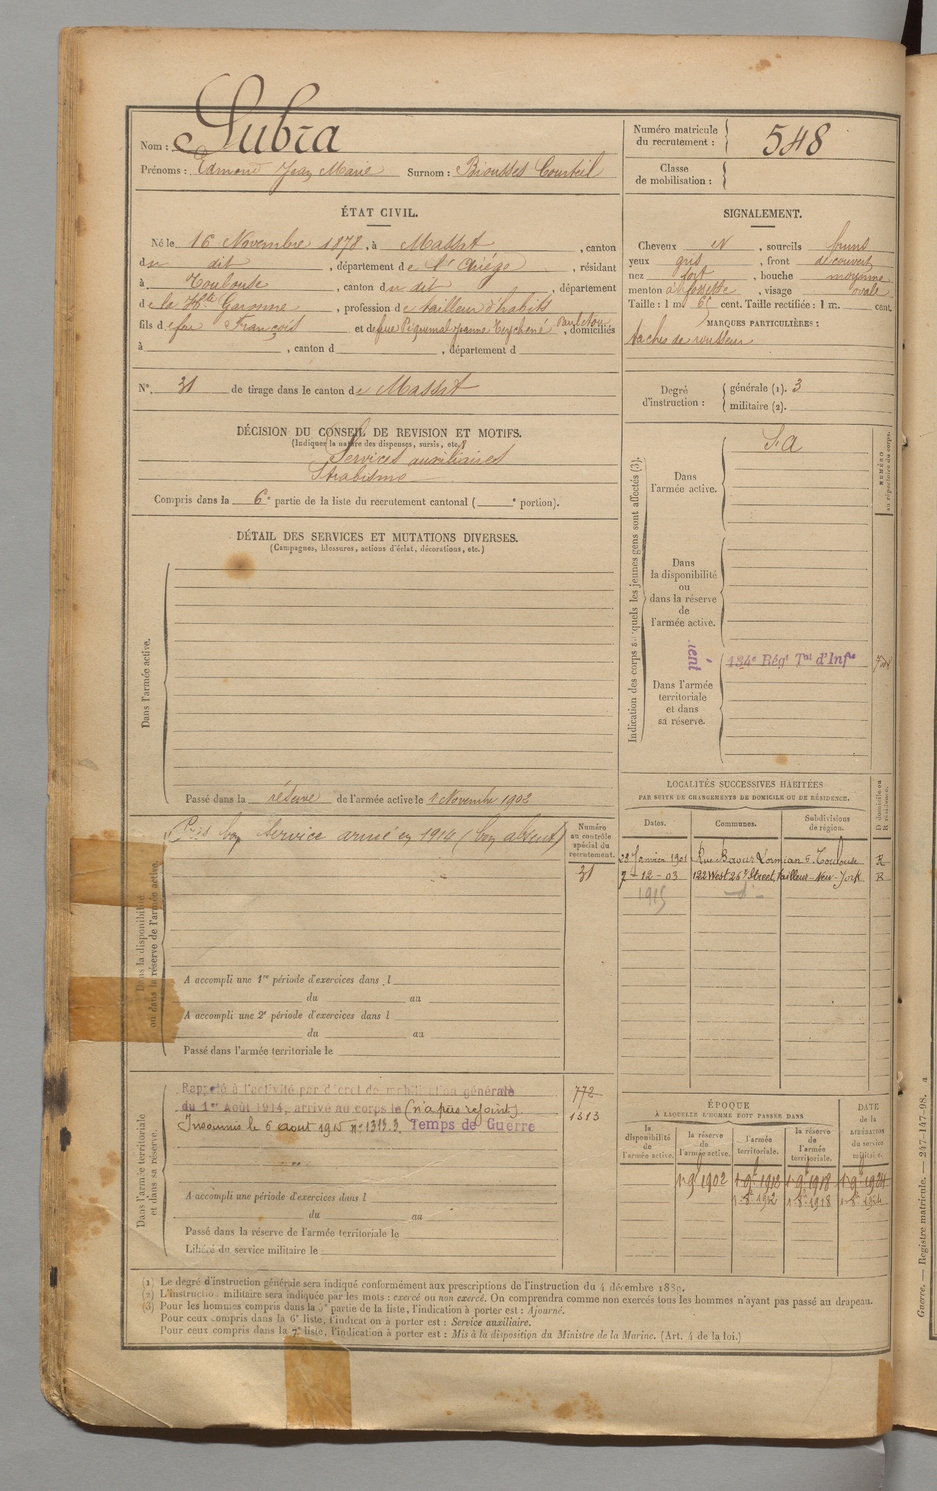 Nom : Subra
Prénoms : Edmond Jean Marie Surnom : Biousses Courteil
Numéro matricule du recrutement : 548
Classe de mobilisation :
ÉTAT CIVIL.
Né le 16 Novembre 1878, à Massat, canton
du dit, département de l'Ariége, résidant
à Toulouse, canton du dit, département
de la Hte Garonne, profession de tailleur d'habits
fils de feu François et de feue Piquemal Jeanne, domiciliés
à , canton d , département d
N°. 31 de tirage dans le canton de Massat
DÉCISION DU CONSEIL DE REVISION ET MOTIFS.
(Indiquer la nature des dispenses, sursis, etc.)
Services auxiliaires
Strabisme
Compris dans la 6e partie de la liste du recrutement cantonal ( e portion).
SIGNALEMENT.
Cheveux N, sourcils bruns
yeux gris, front découvert
nez fort, bouche moyenne
menton à fossette, visage ovale
Taille : 1 m. 65 cent. Taille rectifiée : 1 m. cent.
MARQUES PARTICULIÈRES :
taches de rousseur
Degré d'instruction : générale (1). 3
militaire (2).
DÉTAIL DES SERVICES ET MUTATIONS DIVERSES.
(Campagnes, blessures, actions d'éclat, décorations, etc.)
Dans l'armée active.
Passé dans la réserve de l'armée active le 1 Novembre 1902
Indication des corps auxquels les jeunes gens sont affectés (3).
Dans l'armée active.
S A
Dans la disponibilité ou dans la réserve de l'armée active.
Dans l'armée territoriale et dans sa réserve.
134e Régt Tal d'Infie
NUMÉRO au répertoire du corps.
Dans la disponibilité ou dans la réserve de l'armée active.
bon Service armé en 1914 (bon absent)
Numéro au contrôle spécial du recrutement.
31
A accompli une 1re période d'exercices dans l
du au
A accompli une 2e période d'exercices dans l
du au
Passé dans l'armée territoriale le
LOCALITÉS SUCCESSIVES HABITÉES
PAR SUITE DE CHANGEMENTS DE DOMICILE OU DE RÉSIDENCE.
Dates. Communes. Subdivisions de région. D domicile ou R résidence.
28 Janvier 1901 Rue Baour Lormian 5 Toulouse R
7-12-03 122 West 26e Street, tailleur New-York R
1915 - d° -
Dans l'armée territoriale et dans sa réserve.
Rappelé à l'activité par décret de mobilisation générale
du 1er Août 1914, arrivé au corps le (n'a pas rejoint).
Insoumis le 6 aout 1915 n° 1313.3. Temps de Guerre
772
1313
A accompli une période d'exercices dans l
du au
Passé dans la réserve de l'armée territoriale le
Libéré du service militaire le
ÉPOQUE
À LAQUELLE L'HOMME DOIT PASSER DANS
la disponibilité de l'armée active. la réserve de l'armée active. l'armée territoriale. la réserve de l'armée territoriale. DATE de la LIBÉRATION du service militaire.
1 9bre 1902 1 9bre 1912 1 9bre 1918 1 9bre 1924
1 8bre 1912 1 8bre 1918 1 8bre 1924
(1) Le degré d'instruction générale sera indiqué conformément aux prescriptions de l'instruction du 4 décembre 1889.
(2) L'instruction militaire sera indiquée par les mots : exercé ou non exercé. On comprendra comme non exercés tous les hommes n'ayant pas passé au drapeau.
(3) Pour les hommes compris dans la 5e partie de la liste, l'indication à porter est : Ajourné.
Pour ceux compris dans la 6e liste, l'indication à porter est : Service auxiliaire.
Pour ceux compris dans la 7e liste, l'indication à porter est : Mis à la disposition du Ministre de la Marine. (Art. 4 de la loi.)
Guerre. — Registre matricule. — 247-147-98.